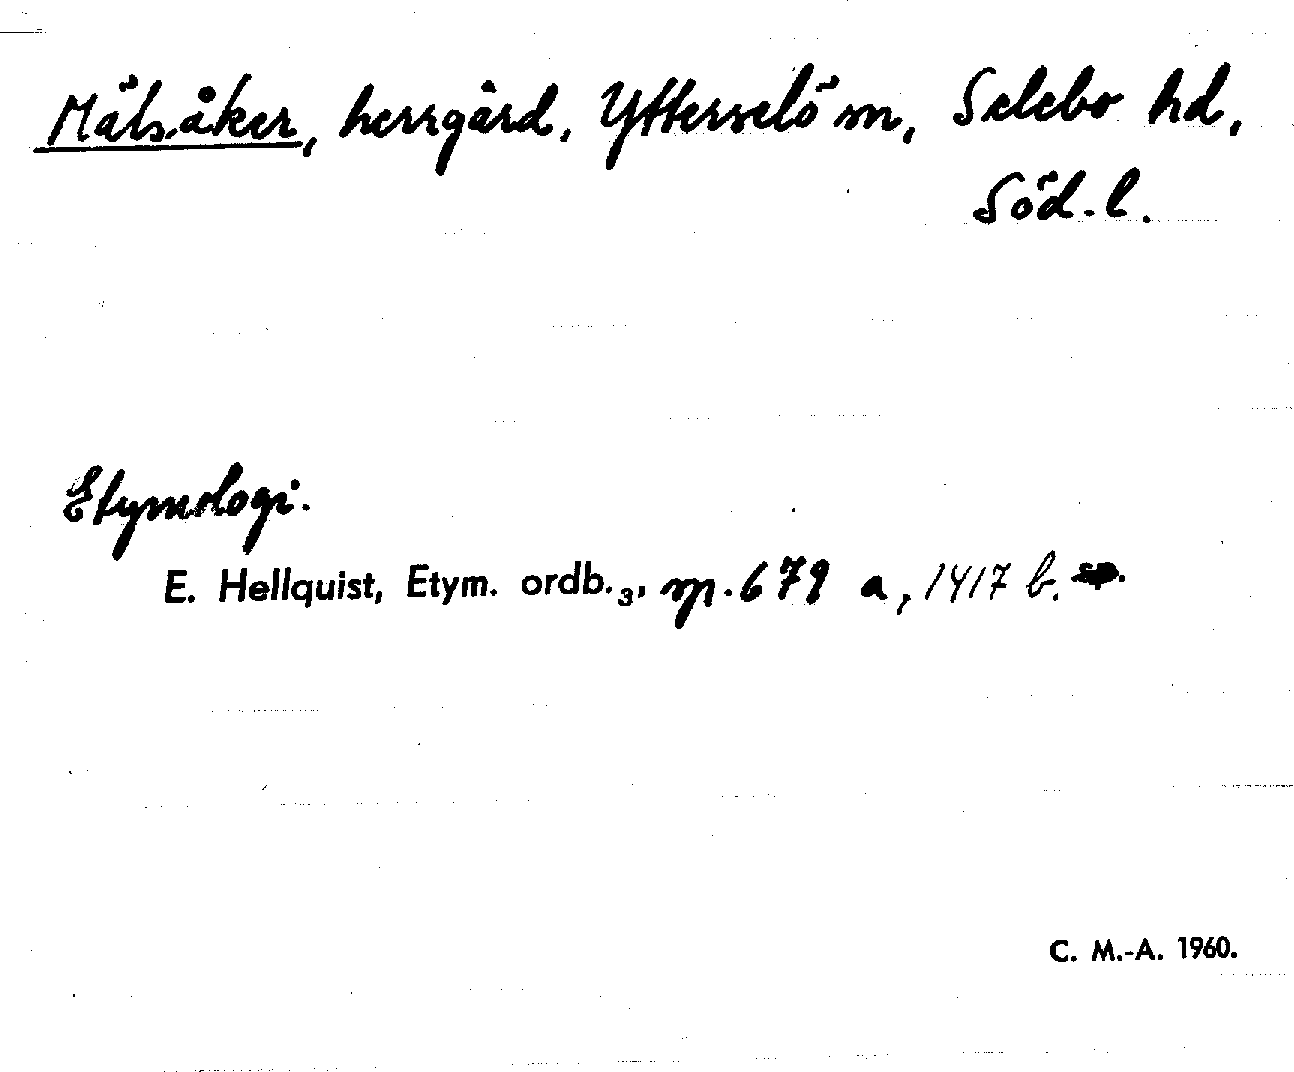 Mälsåker, herrgård, Ytterselö sn, Selebo hd,
Söd. l.
Etymologi.
E. Hellquist, Etym. ordb.₃, sp. 679 a, 1417 b.
C. M.-A. 1960.